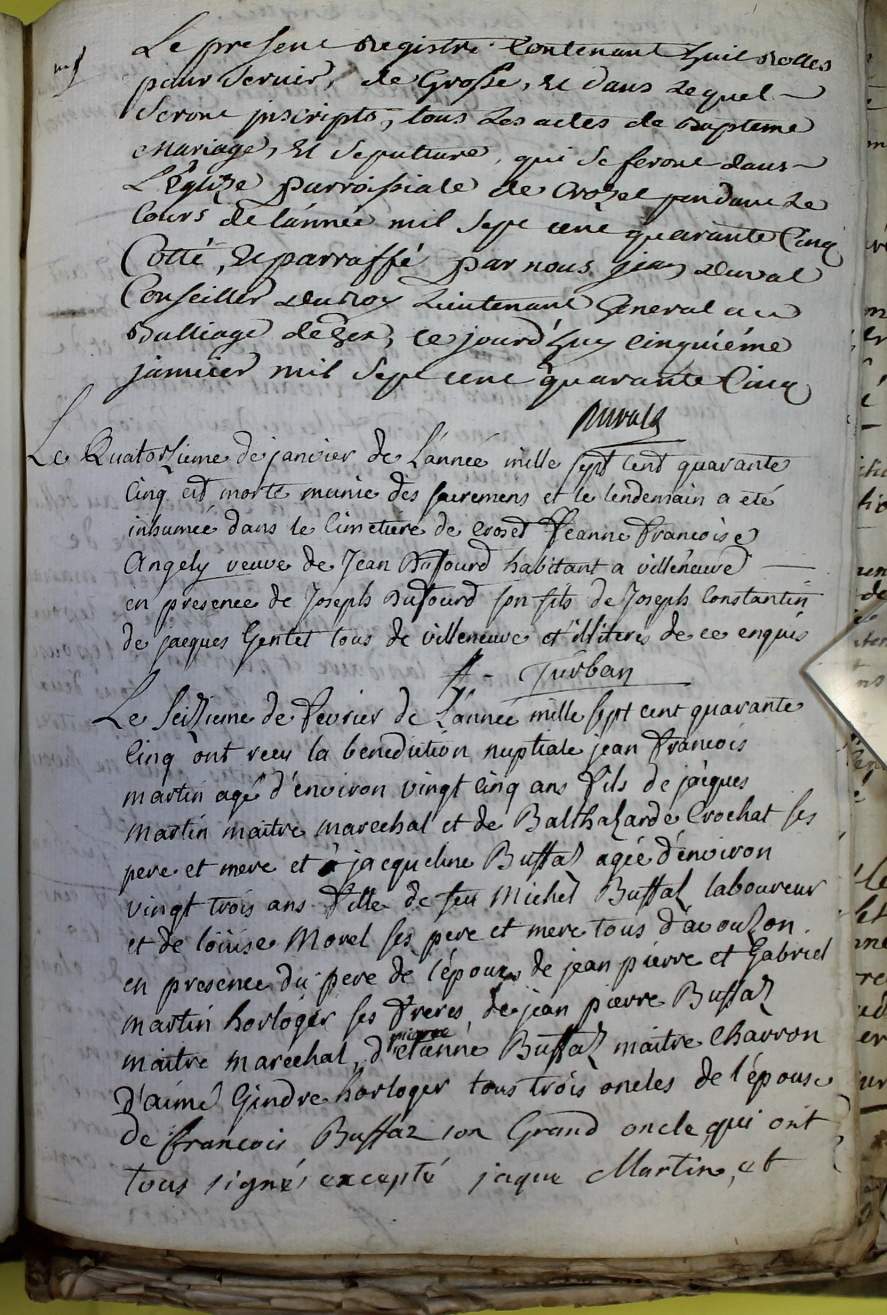 Le present Registre Contenant huit Rolles
pour Servir, de Grosse, et dans Lequel
Seront jnscripts, tous Les actes de Bapteme
Mariage, et Sepulture, qui Se feront dans
L'Eglize Parroissiale de Crozet pendant Le
Cours de l'année mil Sept cent quarante Cinq
Cotté, et parraffé par nous Jean Duval
Conseiller du Roy Lieutenant General au
Balliage de Gex, ce jourd'huy cinquiéme
janvier mil Sept cent quarante Cinq
Duval
Le Quatorzieme de janvier de L'année mille sept cent quarante
Cinq est morte munie des sacremens et le lendemain a eté
inhumée dans le Cimetiere de Crozet Jeanne Francoise
Angely veuve de Jean Dufourd habitant a villeneuve
en presence de Joseph Dufourd son fils de Joseph Constantin
de jacques Gentet tous de villeneuve et illiterés de ce enquis
Turban
Le Seizieme de Fevrier de L'année mille sept cent quarante
Cinq ont recu la benediction nuptiale jean Francois
martin agé d'environ vingt cinq ans Fils de jacques
Martin maitre marechal et de Balthazarde Crochat ses
pere et mere et jacqueline Buffaz agée d'environ
vingt trois ans Fille de feu Michel Buffaz laboureur
et de loüise Morel ses pere et mere tous d'avouzon.
en presence du pere de l'époux de jean pierre et Gabriel
martin horloger ses Freres, de jean pierre Buffaz
maitre marechal, d'etienne Buffaz maitre Charron
D'aimé Gindre horloger tous trois oncles de l'épouse
de francois Buffaz son Grand oncle qui ont
tous signés excepté jaque Martin, et